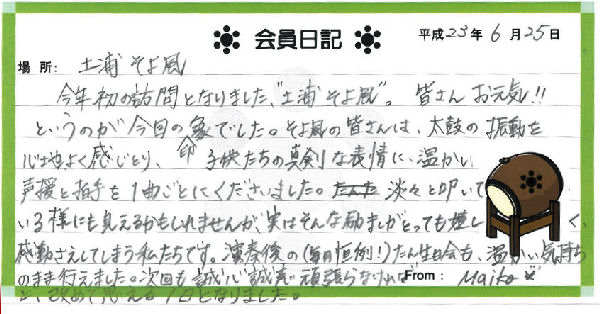 会員日記 平成23年6月25日
場所: 土浦 そよ風
今年初の訪問となりました、"土浦 そよ風"。 皆さん お元気!!
というのが今回の象でした。そよ風の皆さんは、太鼓の振動を
印
心地よく感じとり、子供たちの真剣な表情に、温かい
声援と拍手を1曲ごとにくださいました。淡々と叩いて
いる様にも見えるかもしれませんが、実はそんな励ましがとっても嬉しく、
感動さえしてしまう私たちです。演奏後の(毎月恒例!)たん生日会も、温かい気持ち
のまま行えました。次回も誠心誠意頑張らなければ From: Maiko
と、改めて思える1日となりました。